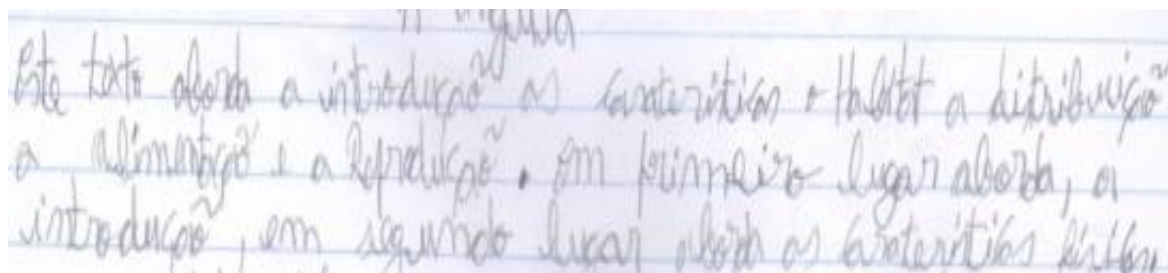 A inguia
Este texto aborda a introdução as carateríticas o Habitat a distribuição
a alimentação e a Reprodução. em primeiro lugar aborda, a
introdução, em segundo lugar aborda as caraterítica físicas,